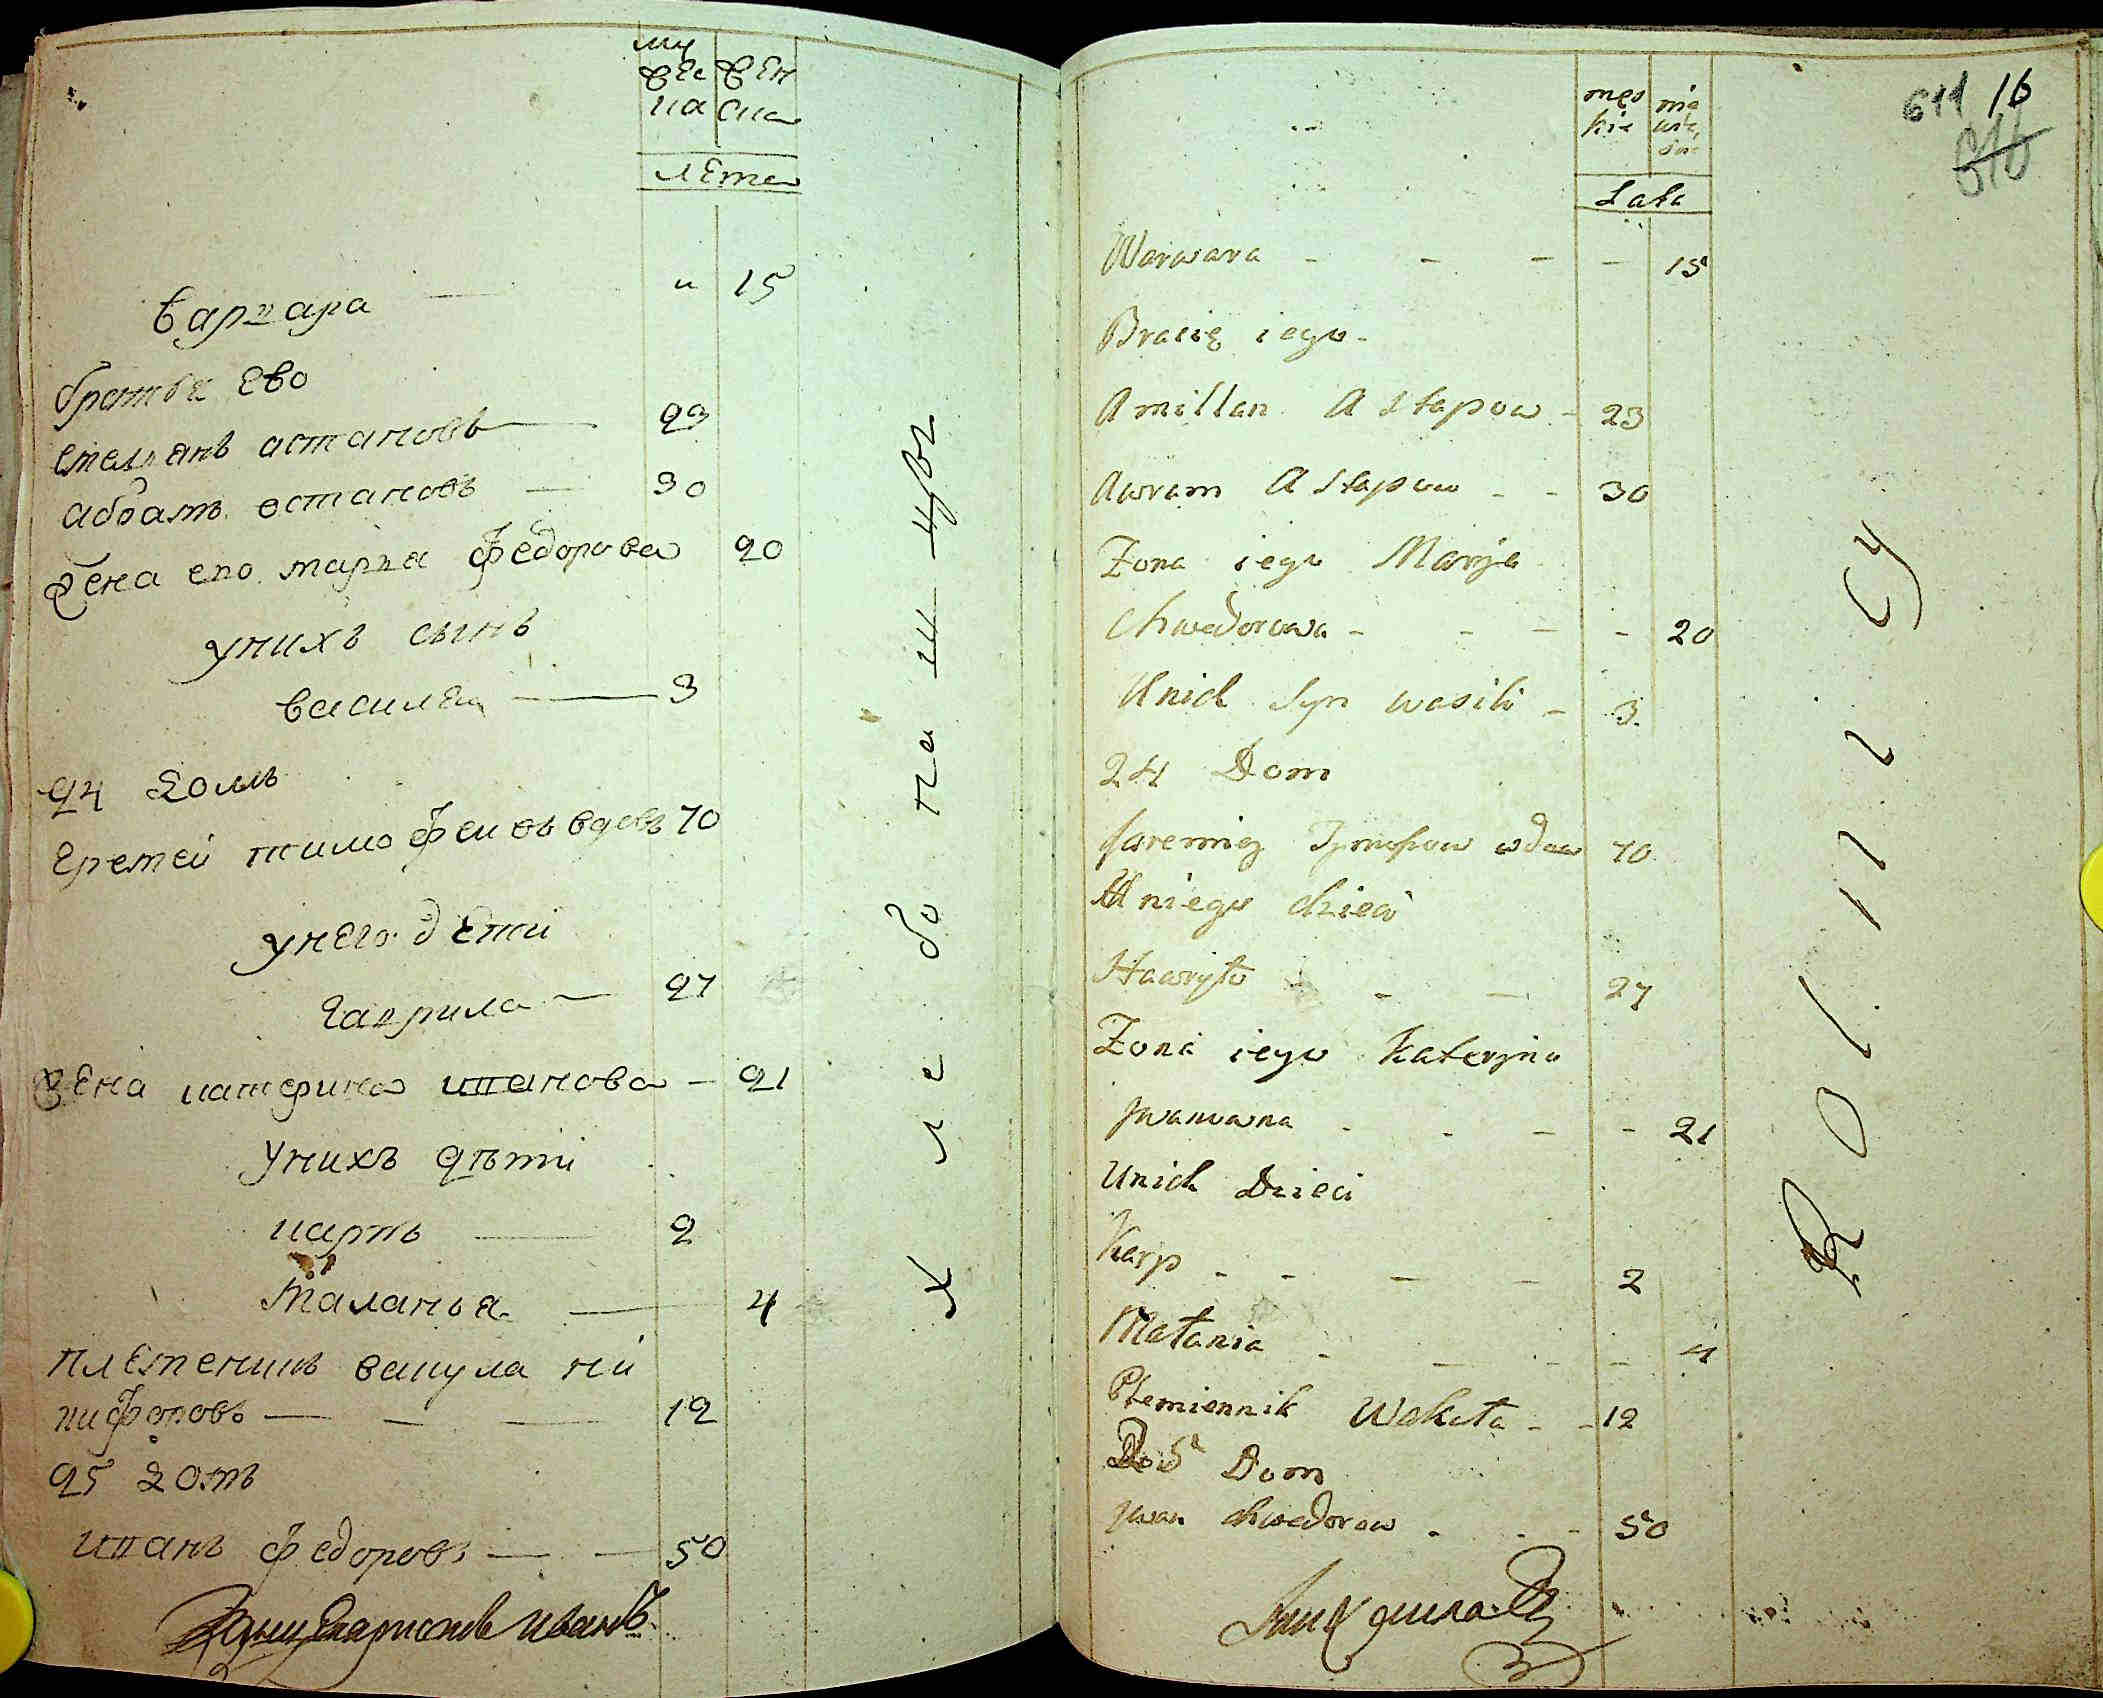 му
жес жен
ка ска
лета
Варвара — " 15
братья ево
емелянъ астаповъ — 23
абрамъ остаповъ — 30
жена ево марья федорова 20
унихъ сынъ
василей — 3
24 домъ
еремей тимофеивъ вдовъ 70
унего дети
гаврила — 27
жена катерина иванова — 21
унихъ дѣти
карпъ — 2
маланья — 4
племеникъ вакула ни
кифоровъ — 12
25 домъ
иванъ федоровъ — 50
Иванъ
хлебопашцы
męs
kie
Lata
Warwara - - - - 15
Bracię iego -
Amillan Astapow - 23
Awram Astapow - - 30
Zona iego Marja
Chwedorowa - - - - 20
Unich Syn wasili - 3
24 Dom
Jaremiey Tymofiow wdow 70
U niego dzieci
Hawryło - - - 27
Zona iego Kateryna
Jwanowna - - - - 21
Unich Dzieci
Karp - - - - 2
Małania - - - - 4
Plemiennik Wakuła - - 12
Dom
Jwan Chwedorow - - - 50
Rolnicy
611 16
616